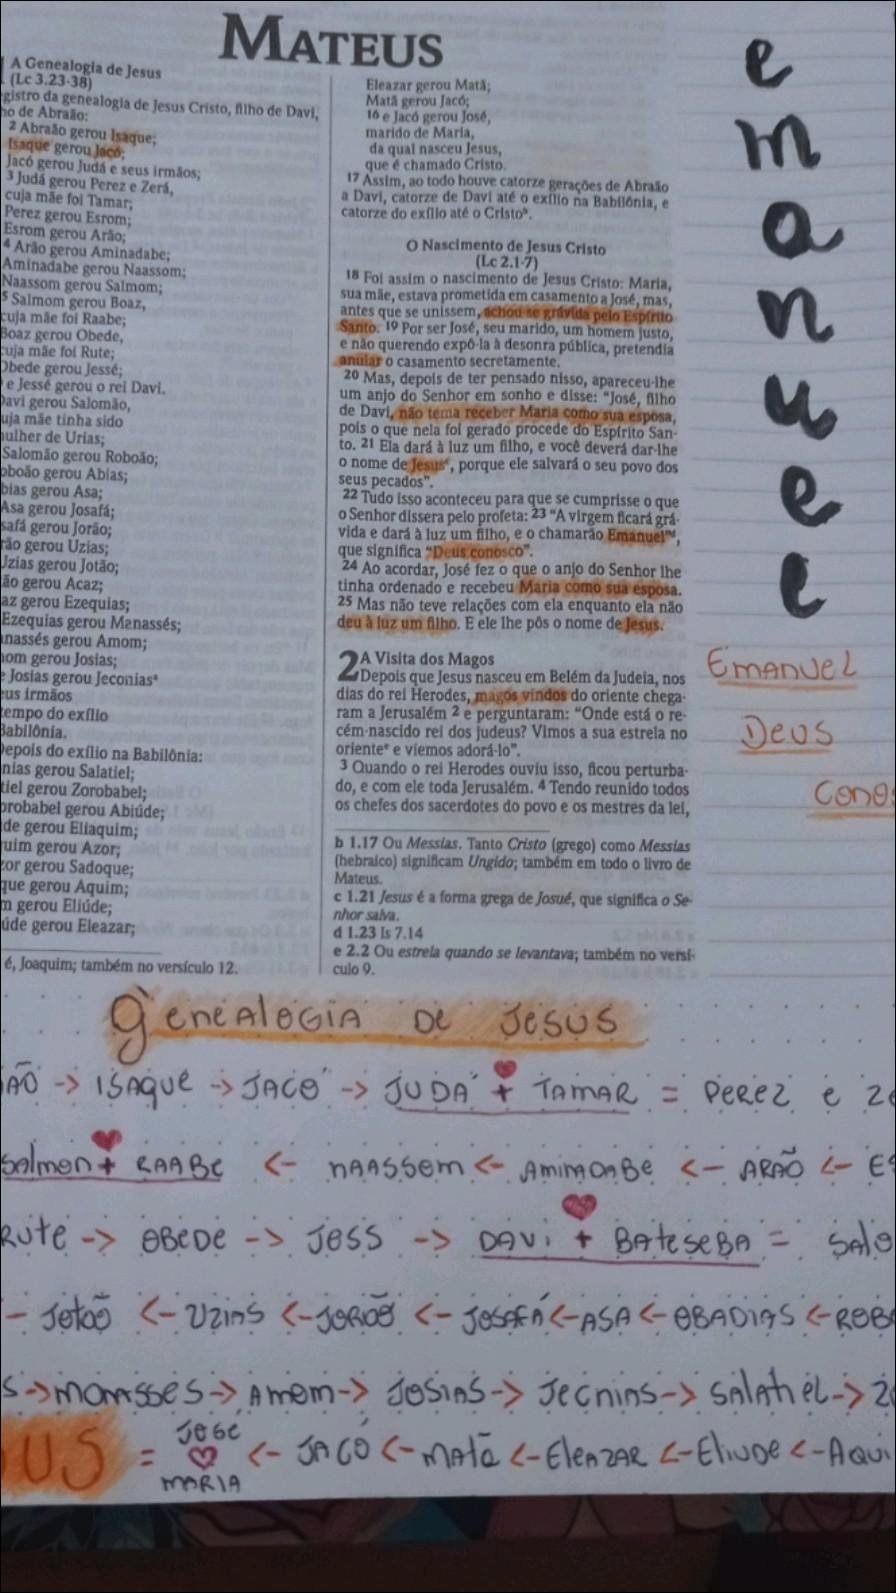 MATEUS
A Genealogia de Jesus
(Lc 3.23-38)
gistro da genealogia de Jesus Cristo, filho de Davi,
ho de Abraão:
2 Abraão gerou Isaque;
Isaque gerou Jacó;
Jacó gerou Judá e seus irmãos;
3 Judá gerou Perez e Zerá,
cuja mãe foi Tamar;
Perez gerou Esrom;
Esrom gerou Arão;
4 Arão gerou Aminadabe;
Aminadabe gerou Naassom;
Naassom gerou Salmom;
5 Salmom gerou Boaz,
cuja mãe foi Raabe;
Boaz gerou Obede,
cuja mãe foi Rute;
Obede gerou Jessé;
e Jessé gerou o rei Davi.
Davi gerou Salomão,
uja mãe tinha sido
mulher de Urias;
Salomão gerou Roboão;
oboão gerou Abias;
bias gerou Asa;
Asa gerou Josafá;
safá gerou Jorão;
rão gerou Uzias;
Uzias gerou Jotão;
ão gerou Acaz;
az gerou Ezequias;
Ezequias gerou Manassés;
anassés gerou Amom;
om gerou Josias;
e Josias gerou Jeconiasª
eus irmãos
tempo do exílio
Babilônia.
Depois do exílio na Babilônia:
nias gerou Salatiel;
tiel gerou Zorobabel;
orobabel gerou Abiúde;
de gerou Eliaquim;
uim gerou Azor;
zor gerou Sadoque;
que gerou Aquim;
m gerou Eliúde;
úde gerou Eleazar;
é, Joaquim; também no versículo 12.
Eleazar gerou Matã;
Matã gerou Jacó;
16 e Jacó gerou José,
marido de Maria,
da qual nasceu Jesus,
que é chamado Cristo.
17 Assim, ao todo houve catorze gerações de Abraão
a Davi, catorze de Davi até o exílio na Babilônia, e
catorze do exílio até o Cristoᵇ.
O Nascimento de Jesus Cristo
(Lc 2.1-7)
18 Foi assim o nascimento de Jesus Cristo: Maria,
sua mãe, estava prometida em casamento a José, mas,
antes que se unissem, achou-se grávida pelo Espírito
Santo. 19 Por ser José, seu marido, um homem justo,
e não querendo expô-la à desonra pública, pretendia
anular o casamento secretamente.
20 Mas, depois de ter pensado nisso, apareceu-lhe
um anjo do Senhor em sonho e disse: "José, filho
de Davi, não tema receber Maria como sua esposa,
pois o que nela foi gerado procede do Espírito San-
to. 21 Ela dará à luz um filho, e você deverá dar-lhe
o nome de Jesusᶜ, porque ele salvará o seu povo dos
seus pecados".
22 Tudo isso aconteceu para que se cumprisse o que
o Senhor dissera pelo profeta: 23 "A virgem ficará grá-
vida e dará à luz um filho, e o chamarão Emanuel"ᵈ,
que significa "Deus conosco".
24 Ao acordar, José fez o que o anjo do Senhor lhe
tinha ordenado e recebeu Maria como sua esposa.
25 Mas não teve relações com ela enquanto ela não
deu à luz um filho. E ele lhe pôs o nome de Jesus.
2 A Visita dos Magos
Depois que Jesus nasceu em Belém da Judeia, nos
dias do rei Herodes, magos vindos do oriente chega-
ram a Jerusalém 2 e perguntaram: "Onde está o re-
cém-nascido rei dos judeus? Vimos a sua estrela no
orienteᵉ e viemos adorá-lo".
3 Quando o rei Herodes ouviu isso, ficou perturba-
do, e com ele toda Jerusalém. 4 Tendo reunido todos
os chefes dos sacerdotes do povo e os mestres da lei,
b 1.17 Ou Messias. Tanto Cristo (grego) como Messias
(hebraico) significam Ungido; também em todo o livro de
Mateus.
c 1.21 Jesus é a forma grega de Josué, que significa o Se-
nhor salva.
d 1.23 Is 7.14
e 2.2 Ou estrela quando se levantava; também no versí-
culo 9.
e
m
a
n
u
e
l
EMANUEL
DEUS
CONOS
GENEALOGIA DE JESUS
AÃO -> ISAQUE -> JACÓ -> JUDÁ + TAMAR = PEREZ E ZE
SALMON + RAABE <- NAASSOM <- AMINADABE <- ARÃO <- ES
RUTE -> OBEDE -> JESS -> DAVI + BATESEBA = SALO
<- JOTÃO <- UZIAS <- JORÃO <- JOSAFÁ <- ASA <- OBADIAS <- ROB
S -> MANASSES -> AMOM -> JOSIAS -> JECNIAS -> SALATIEL -> Z
US = JOSÉ MARIA <- JACÓ <- MATÃ <- ELEAZAR <- ELIUDE <- AQUI